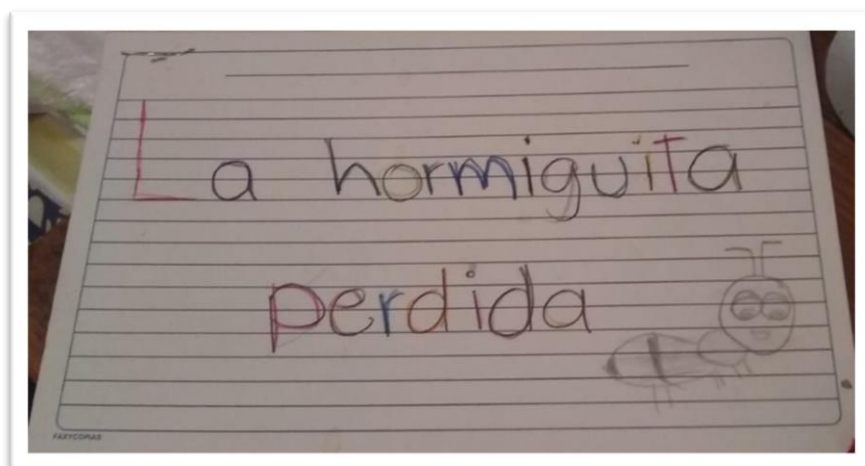 La hormiguita
perdida
FAXYCOPIAS